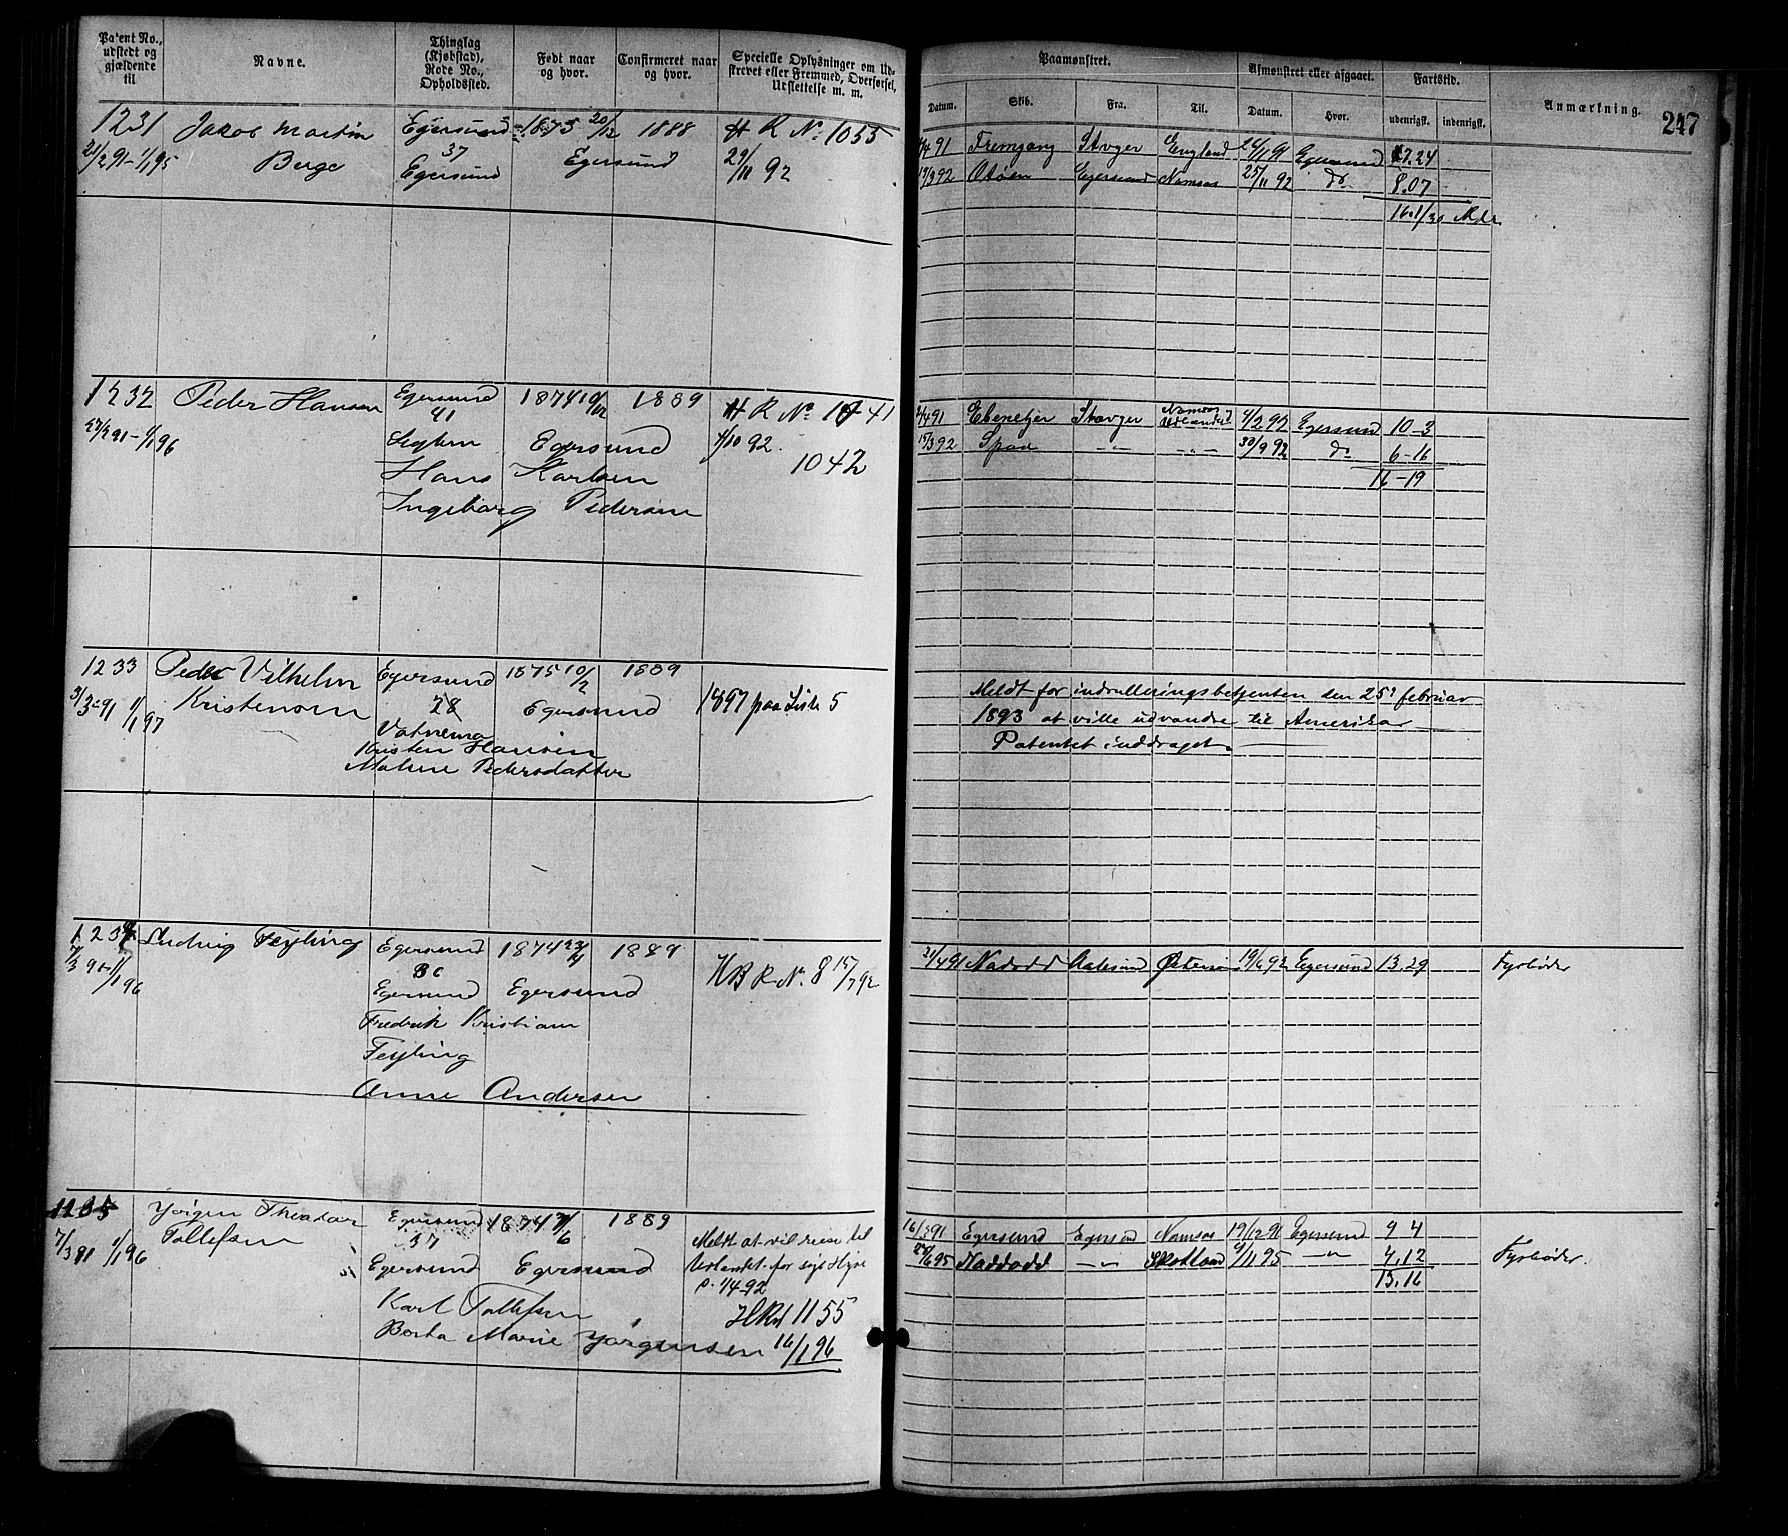 Patent No., udstedt og gjældende til
Navne.
Thinglag (Kjøbstad), Rode No., Opholdssted.
Født naar og hvor.
Confirmeret naar og hvor.
Specielle Oplysninger om Udskrevet eller Fremmed, Overførsel, Udslettelse m. m.
Paamønstret.
Afmønstret eller afgaaet.
Fartstid.
Anmærkning.
247
Datum.
Skib.
Fra.
Til.
Datum.
Hvor.
udenrigsk.
indenrigsk.
1231 Jakob Martin Egersund 1873 20/12 1888 H R No 1055
21/2 91 - 1/1 95 Berge 37 Egersund 29/11 92
Egersund
4/4 91 Fremgang Stvger England 26/11 91 Egersund 17.24
17/3 92 Otøen Egersund Namsos 25/11 92 do 8.07
1232 Peder Hansen Egersund 1874 10/12 1889 H R No 1041
27/2 91 - 1/1 96 41 4/10 92
Egersund 1042
Hans Karlsen
Ingeborg Pedersen
2/4 91 Ebenetzer Stavger Namsos 4/2 92 Egersund 10-3
17/3 92 Spaa -"- -"- 30/9 92 do 6-16
16-19
1233 Peder Vilhelm Egersund 1875 10/2 1889
3/3 91 1/1 97 Kristensen 28 Egersund 1897 paa Liste 5
Kristen Hansen
Malene Pedersdatter
Meldt for indrulleringsbetjenten den 25' februar
1893 at ville udvandre til Amerika
Patentet inddraget.
1234 Ludvig Feyling Egersund 1874 23/4 1889
7/3 91 - 1/1 96 Egersund Egersund HB R No. 8 15/7 92
Fredrik Kristian
Feyling
Anne Andersen
21/4 91 Nadodd Aalesund Østersøn 19/6 92 Egersund 13.29 Fyrbøder
1235 Yørgen Theodor Egersund 1874 7/6 1889
7/3 91 1/1 96 Tollefsen 37 Meldt at vil reise til
Egersund Egersund Udlandet for søge Hyre
p. 1/4 92
Karl Tollefsen HRNo 1155
Berta Marie Yørgensen 16/1 96
16/3 91 Egersund Egersund Namsos 19/12 91 Egersund 9 4
Naddodd -"- Skotland 9/11 95 -"- 4.12 Fyrbøder.
13.16